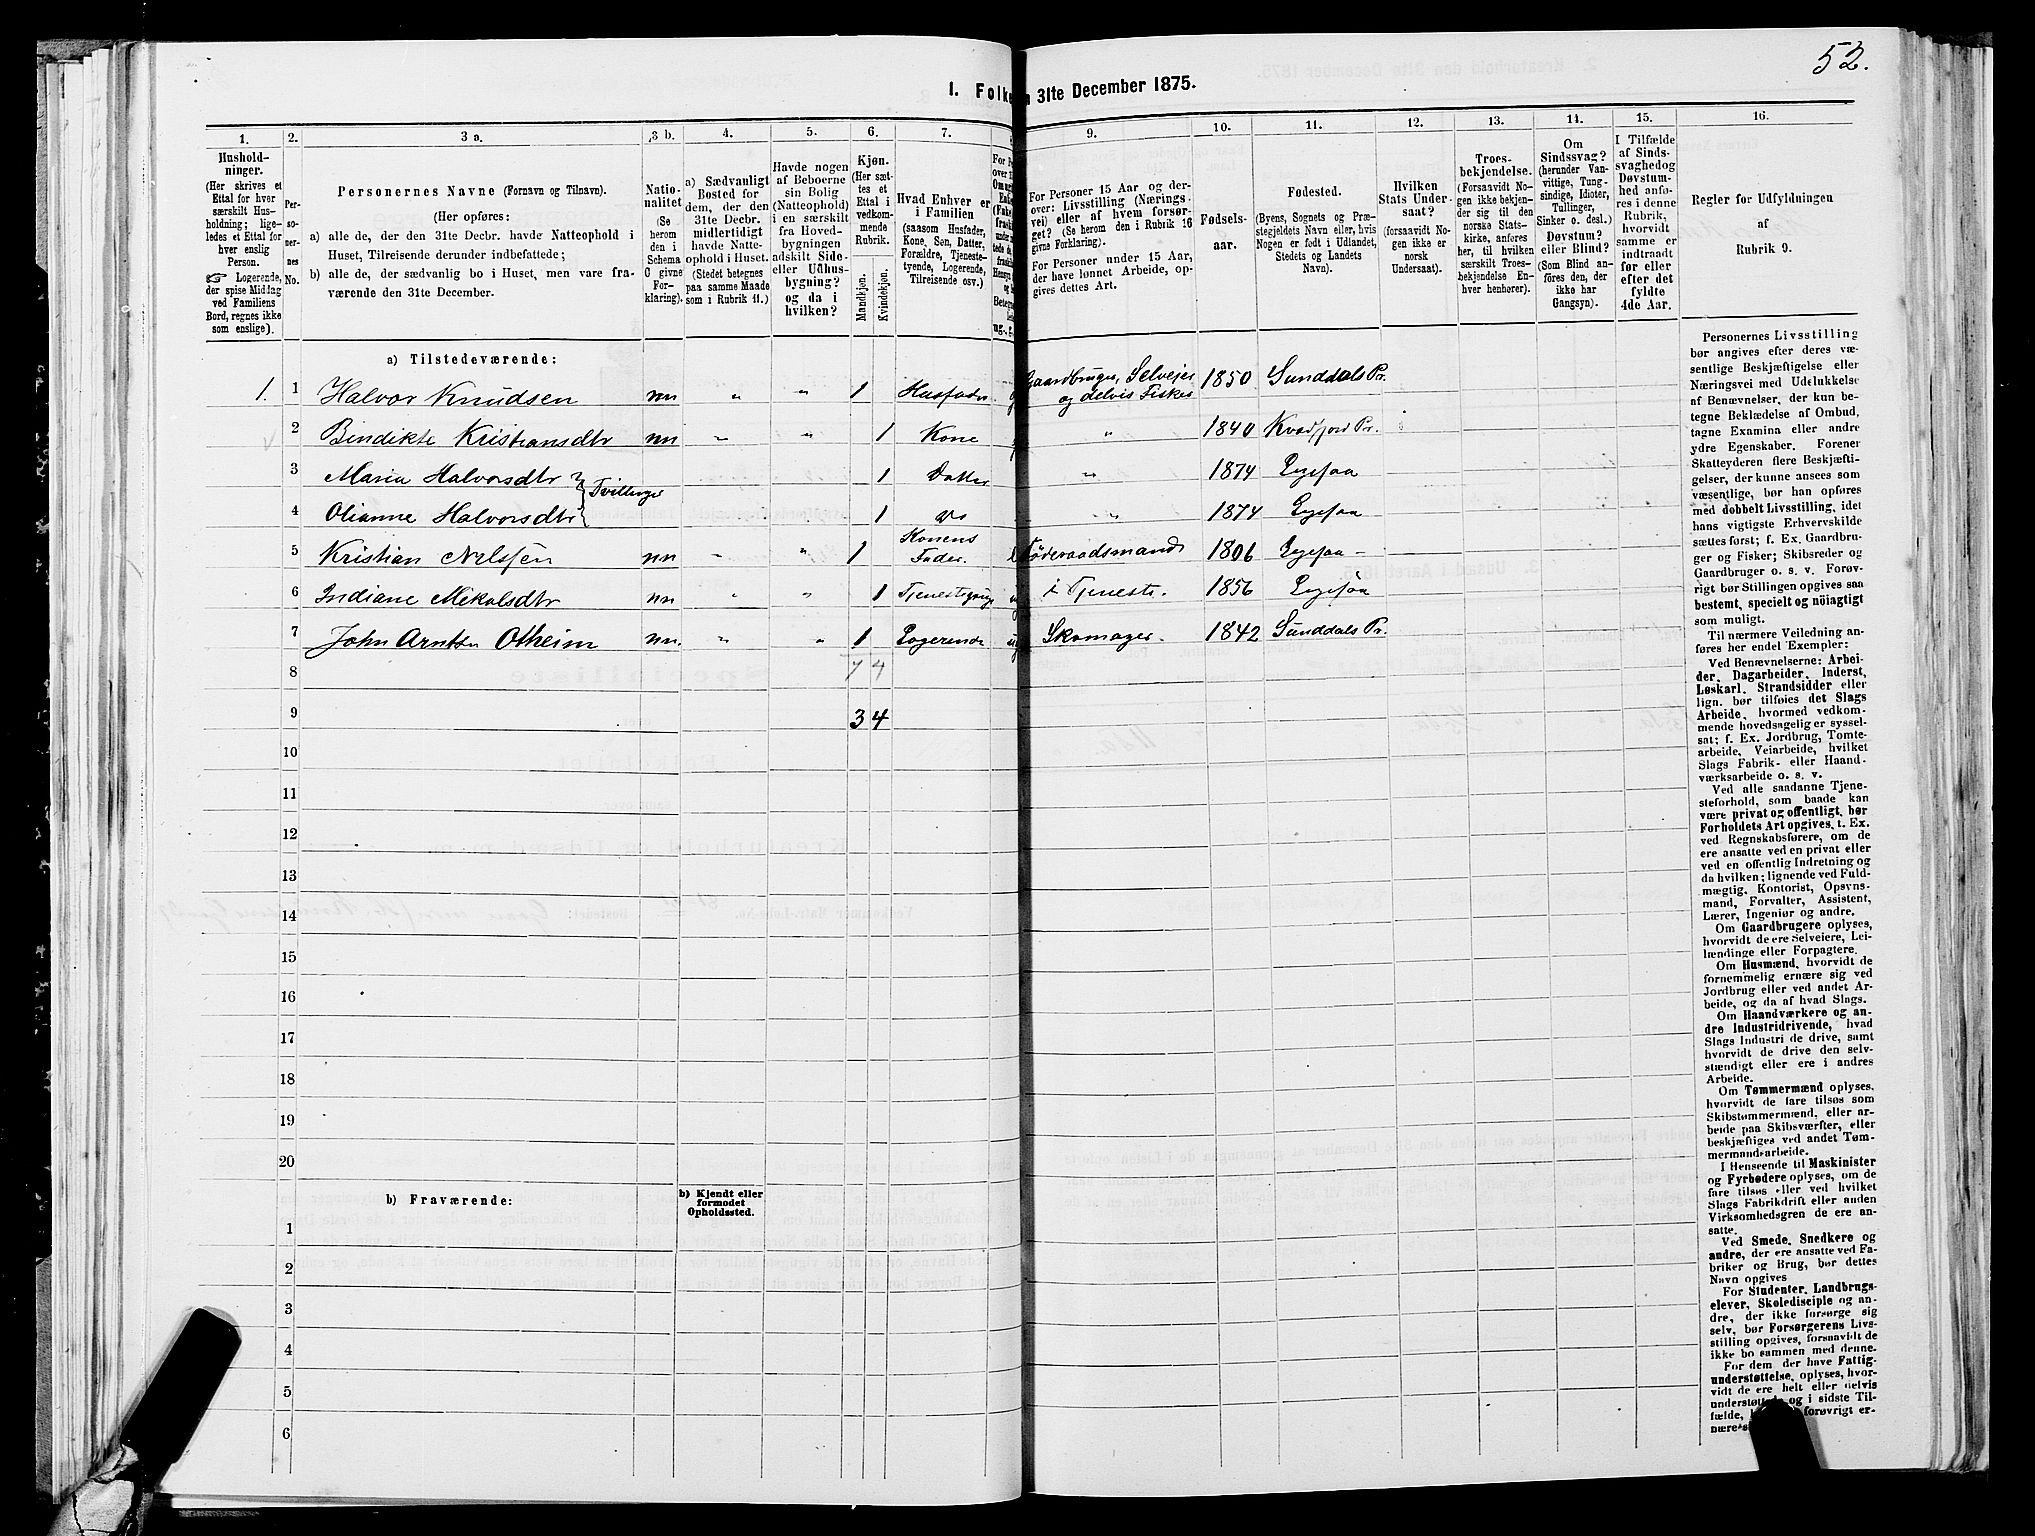 52.
1. Folke n 31te December 1875.
1. 2. 3 a. 3 b. 4. 5. 6. 7. 9. 10. 11. 12. 13. 14. 15. 16.
Hushold-
ninger.
(Her skrives et
Ettal for hver
særskilt Hus-
holdning; lige-
ledes et Ettal for
hver enslig
Person.
☞ Logerende,
der spise Middag
ved Familiens
Bord, regnes ikke
som enslige).
Per-
so-
ner-
nes
No.
Personernes Navne (Fornavn og Tilnavn).
(Her opføres:
a) alle de, der den 31te Decbr. havde Natteophold i
Huset, Tilreisende derunder indbefattede;
b) alle de, der sædvanlig bo i Huset, men vare fra-
værende den 31te December.
Natio-
nalitet
(Se
herom
den i
Schema
C givne
For-
klaring).
a) Sædvanligt
Bosted for
dem, der den
31te Decbr.
midlertidigt
havde Natte-
ophold i Huset.
(Stedet betegnes
paa samme Maade
som i Rubrik 11.)
Havde nogen
af Beboerne
sin Bolig
(Natteophold)
i en særskilt
fra Hoved-
bygningen
adskilt Side-
eller Udhus-
bygning?
og da i
hvilken?
Kjøn.
(Her sæt-
tes et
Ettal i
vedkom-
mende
Rubrik.
Mandkjøn.
Kvindekjøn.
Hvad Enhver er
i Familien
(saasom Husfader,
Kone, Søn, Datter,
Forældre, Tjenest-
etyende, Logerende,
Tilreisende osv.)
For Personer 15 Aar og der-
over: Livsstilling (Nærings-
vei) eller af hvem forsør-
get? (Se herom den i Rubrik 16
givne Forklaring).
For Personer under 15 Aar,
der have lønnet Arbeide, op-
gives dettes Art.
Fødsels-
aar.
Fødested.
(Byens, Sognets og Præ-
stegjeldets Navn eller, hvis
Nogen er født i Udlandet,
Stedets og Landets
Navn).
Hvilken
Stats Under-
saat?
(forsaavidt No-
gen ikke er
norsk
Undersaat).
Troes-
bekjendelse.
(Forsaavidt No-
gen ikke bekjen-
der sig til den
norske Stats-
kirke, anføres
her, til hvilken
særskilt Troes-
bekjendelse En-
hver henhører).
Om
Sindssvag?
(herunder Van-
vittige, Tung-
sindige, Idioter,
Tullinger,
Sinker o. desl.)
Døvstum?
eller Blind?
(Som Blind an-
føres den, der
ikke har
Gangsyn).
I Tilfælde
af Sinds-
svaghed og
Døvstum-
hed anfø-
res i denne
Rubrik,
hvorvidt
samme er
indtraadt
før eller
efter det
fyldte
4de Aar.
Regler for Udfyldningen
af
Rubrik 9.
a) Tilstedeværende:
1. 1 Halvor Knudsen nn " " 1 Husfader Gaardbruger, Selveier og delvis Fisker 1850 Sunddals Pr.
2 Bendikte Kristiansdtr nn " " 1 Kone " 1840 Kvædfjord Pr.
3 Maria Halvorsdtr } Tvillinger 1 Datter " 1874
4 Olianne Halvorsdtr 1 do " 1874
5 Kristian Nilssen nn " " 1 Konens Fader. Føderaadsmand 1806
6 Indiane Mikalsdtr nn " " 1 i Tjeneste. 1856
7 John Arntsen nn. " " 1 Logerende ug Skomager. 1842 Sunddals Pr.
8 7 4
9 3 4
10
11
12
13
14
15
16
17
18
19
20
b) Fraværende:
b) Kjendt eller
formodet
Opholdssted.
1
2
3
4
5
6
Personernes Livsstilling
bør angives efter deres væ-
sentlige Beskjæftigelse eller
Næringsvei med Udelukkelse
af Benævnelser, der kun be-
tegne Beklædelse af Ombud,
tagne Examina eller andre
ydre Egenskaber. Forener
Skatteyderen flere Beskjæfti-
gelser, der kunne ansees som
væsentlige, bør han opføres
med dobbelt Livsstilling, idet
hans vigtigste Erhvervskilde
sættes først; f. Ex. Gaardbru-
ger og Fisker; Skibsreder og
Gaardbruger o. s. v. Forøv-
rigt bør Stillingen opgives saa
bestemt, specielt og nöiagtigt
som muligt.
Til nærmere Veiledning an-
føres her endel Exempler:
Ved Benævnelserne: Arbei-
der, Dagarbeider, Inderst,
Løskarl, Strandsidder eller
lign. bør tilføies det Slags
Arbeide, hvormed vedkom-
mende hovedsagelig er syssel-
sat; f. Ex. Jordbrug, Tomte-
arbeide, Veiarbeide, hvilket
Slags Fabrik- eller Haand-
værksarbeide o. s. v.
Ved alle saadanne Tjene-
steforhold, som baade kan
være privat og offentligt, bør
Forholdets Art opgives, t. Ex.
ved Regnskabsførere, om de
ere ansatte ved en privat eller
ved en offentlig Indretning og
da hvilken; lignende ved Fuld-
mægtig, Kontorist, Opsyns-
mand, Forvalter, Assistent,
Lærer, Ingeniør og andre.
Om Gaardbrugere oplyses,
hvorvidt de ere Selveiere, Lei-
lændinge eller Forpagtere.
Om Husmænd, hvorvidt de
fornemmelig ernære sig ved
Jordbrug eller ved andet Ar-
beide, og da af hvad Slags.
Om Haandværkere og an-
dre Industridrivende, hvad
Slags Industri de drive, samt
hvorvidt de drive den selv-
stændigt eller ere i andres
Arbeide.
Om Tømmermænd oplyses,
hvorvidt de fare tilsøs som
Skibstømmermænd, eller ar-
beide paa Skibsværfter, eller
beskjæftiges ved andet Tøm-
mermandsarbeide.
I Henseende til Maskinister
og Fyrbødere oplyses, om de
fare tilsøs eller ved hvilket
Slags Fabrikdrift eller anden
Virksomhedsgren de ere an-
satte.
Ved Smede, Snedkere og
andre, der ere ansatte ved Fa-
briker og Brug, bør dettes
Navn opgives
For Studenter, Landbrugs-
elever, Skoledisciple og an-
dre, der ikke forsørge sig
selv, bør Forsørgerens Livs-
stilling opgives, forsaavidt de
ikke bo sammen med denne.
For dem, der have Fattig-
understøttelse, oplyses, hvor-
vidt de ere helt eller delvis
og i sidste Til-
fælde, forøvrigt er-